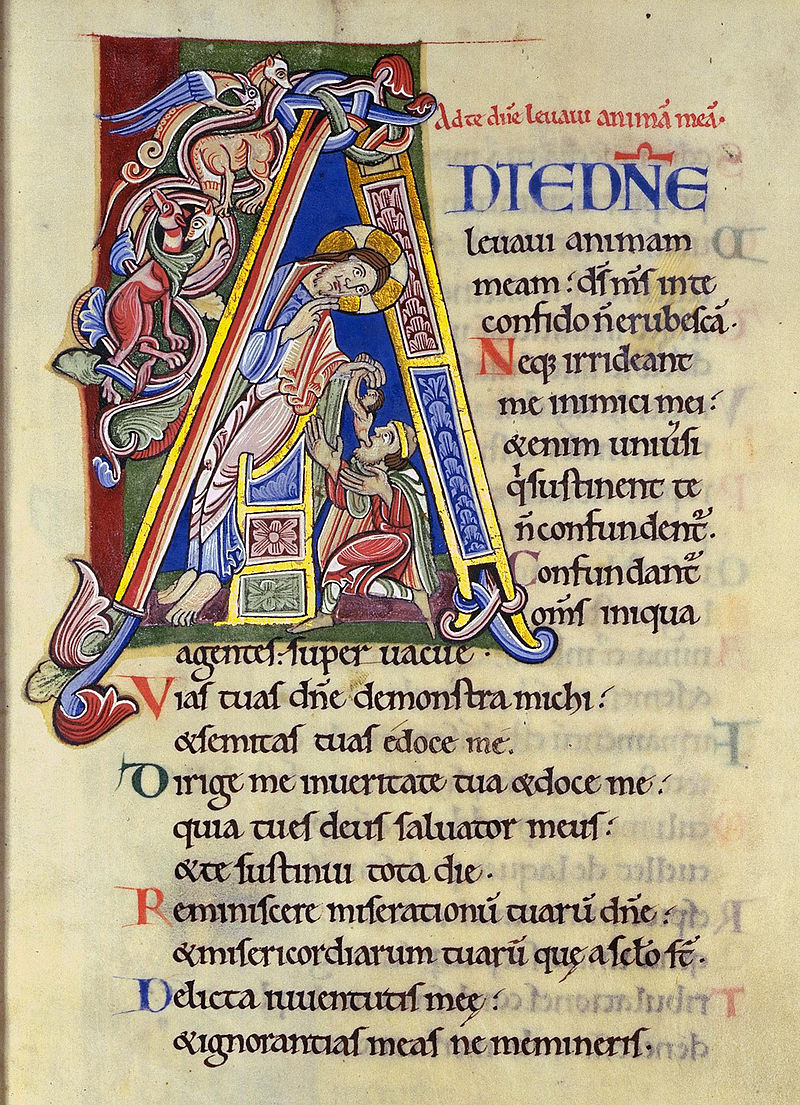 Ad te dn̄e levavi animā meā.
AD TE DN̄E
levavi animam
meam: ds̄ ms̄ in te
confido n̄ erubescā.
Neq; irrideant
me inimici mei:
&enim univ̄si
q̇ sustinent te
n̄ confundent᷑.
Confundant᷑
om̄s iniqua
agentes: super vacue.
Vias tuas dn̄e demonstra michi:
&semitas tuas edoce me.
Dirige me in veritate tua &doce me:
quia tu es deus salvator meus:
&te sustinui tota die.
Reminiscere miserationū tuarū dn̄e:
&misericordiarum tuarū quę a scło st̄.
Delicta iuventutis meę:
&ignorantias meas ne memineris.